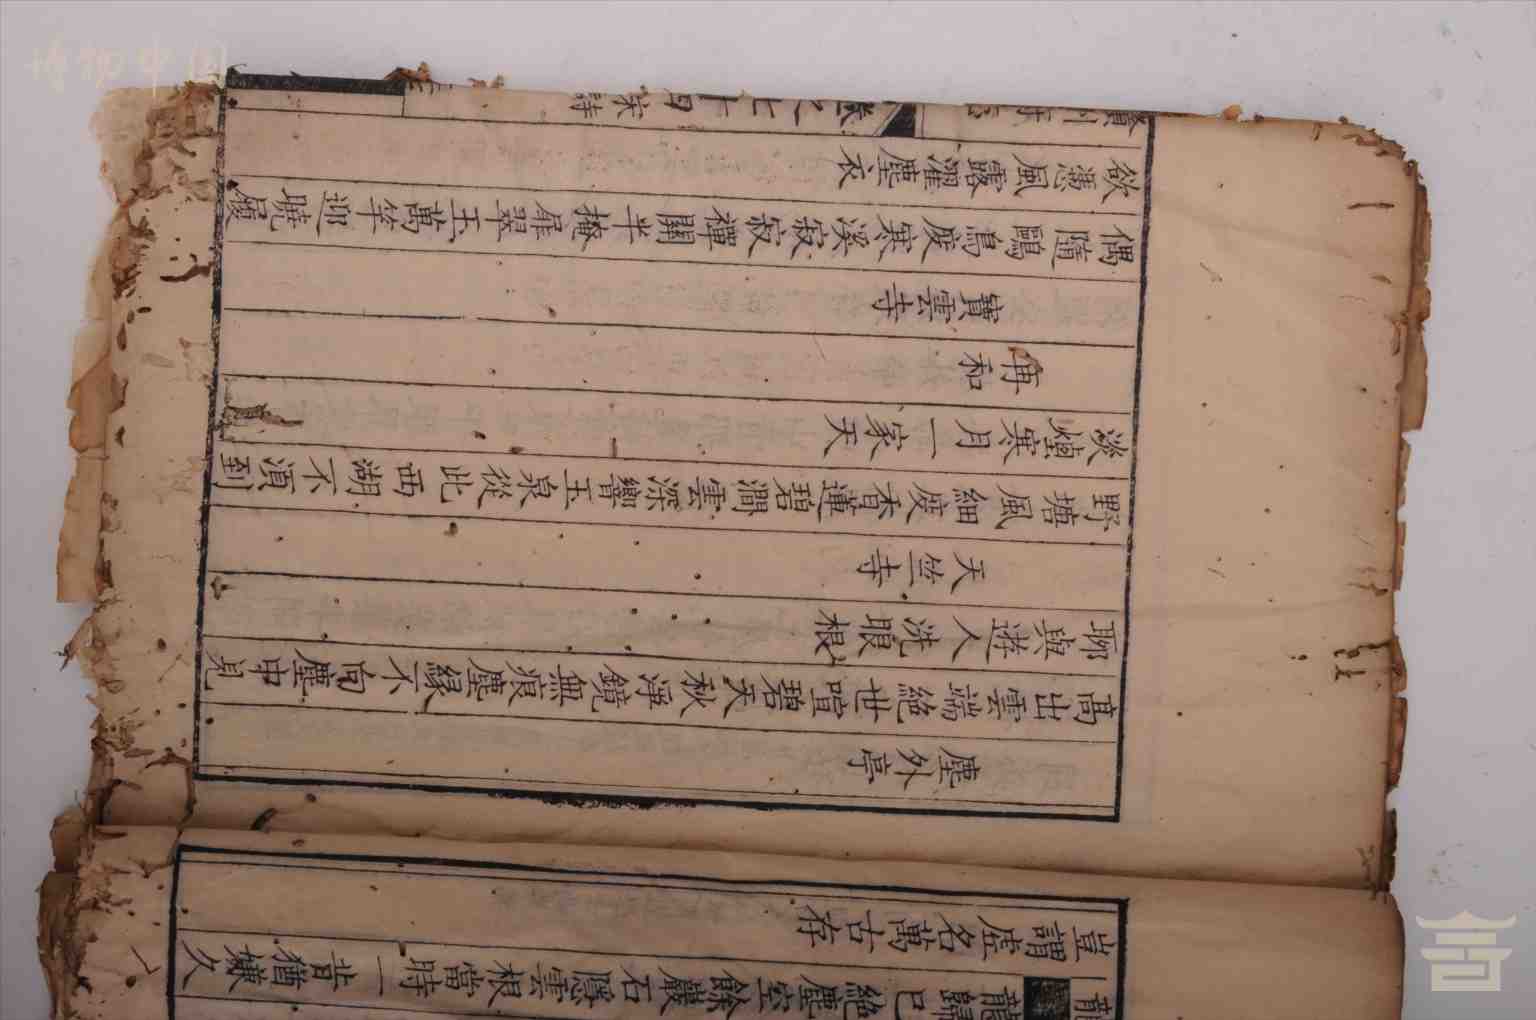 龍歸已絶塵空餘巖石隱雲根當時一昔猶嫌久
豈謂虛名萬古存
塵外亭
高出雲端絶世喧碧天秋淨鏡無痕塵緣不向塵中見
聊與遊人洗眼根
天竺寺
野塘風細度香蓮碧澗雲深響玉泉從此西湖不須到
淡煙寒月一家天
再和
寶雲寺
偶隨鷗鳥度寒溪寂寂禪關半掩扉翠玉萬竿迎曉履
欲憑風露濯塵衣
贛州府志 卷之七十四 宋詩
博物中国